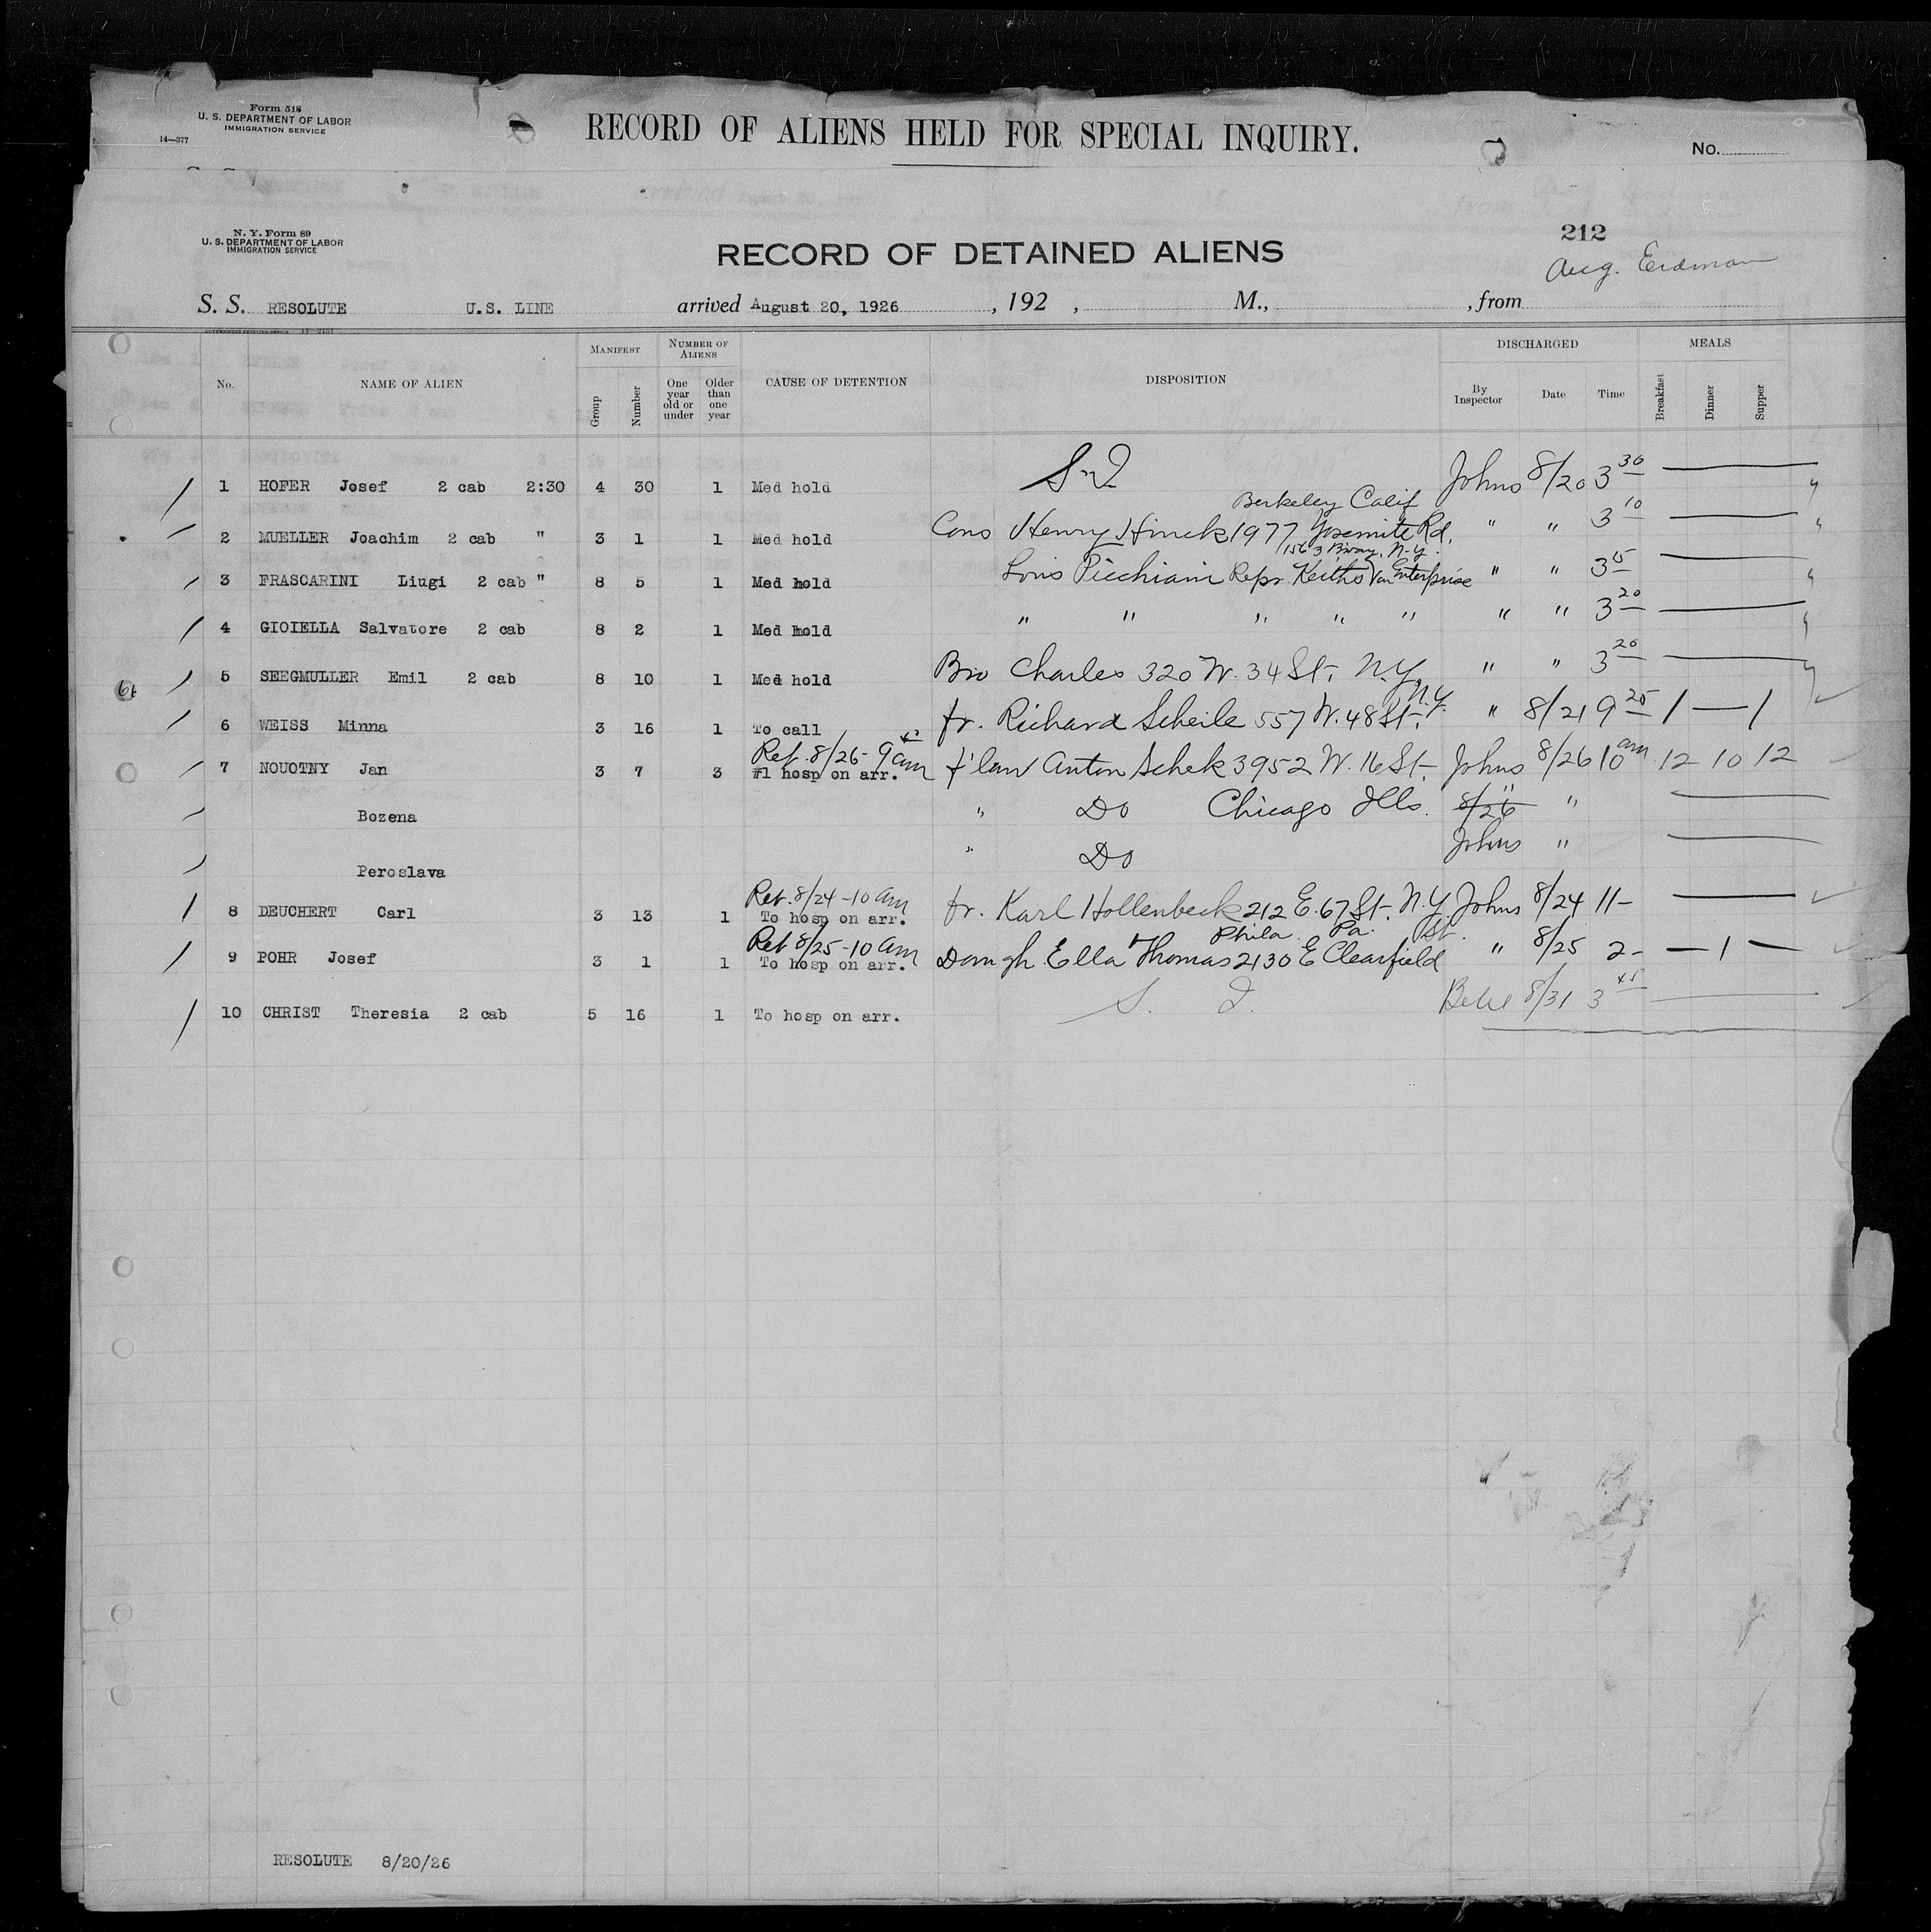 Form 518
U. S. DEPARTMENT OF LABOR
IMMIGRATION SERVICE
14—377
RECORD OF ALIENS HELD FOR SPECIAL INQUIRY.
No.
N. Y. Form 89
U. S. DEPARTMENT OF LABOR
IMMIGRATION SERVICE
RECORD OF DETAINED ALIENS
212
Aug. Erdman
S. S. RESOLUTE U.S. LINE arrived August 20, 1926, 192 , M., , from
No. NAME OF ALIEN MANIFEST NUMBER OF ALIENS CAUSE OF DETENTION DISPOSITION DISCHARGED MEALS
Group Number One year old or under Older than one year By Inspector Date Time Breakfast Dinner Supper
1 HOFER Josef 2 cab 2:30 4 30 1 Med hold S I Johns 8/20 3 30
Berkeley Calif
2 MUELLER Joachim 2 cab " 3 1 1 Med hold Cons Henry Hinck 1977 Yosemite Rd. " " 3 10
1563 Bway, N-Y.
3 FRASCARINI Liugi 2 cab " 8 5 1 Med hold Louis Picchiani Repr. Keiths Van Enterprise " " 3 15
4 GIOIELLA Salvatore 2 cab 8 2 1 Med hold " " " " " " " 3 20
5 SEEGMULLER Emil 2 cab 8 10 1 Med hold Bro Charles 320 W. 34 St, N.Y. " " 3 20
6 WEISS Minna 3 16 1 To call fr. Richard Scheile 557 W. 48 St, N.Y. " 8/21 9 25 1 — 1
Ret. 8/26 - 9 am
7 NOUOTNY Jan 3 7 3 #1 hosp on arr. f'law Anton Schek 3952 W. 16 St, Johns 8/26 10 am 12 10 12
Bozena " Do Chicago Ills. 8/26 " "
Peroslava " Do Johns "
Ret. 8/24 - 10 am
8 DEUCHERT Carl 3 13 1 To hosp on arr. fr. Karl Hollenbeck 212 E. 67 St, N.Y. Johns 8/24 11-
Ret 8/25 - 10 am Phila. Pa. St.
9 POHR Josef 3 1 1 To hosp on arr. Daugh Ella Thomas 2130 E Clearfield " 8/25 2- — 1 —
10 CHRIST Theresia 2 cab 5 16 1 To hosp on arr. S. I. 8/31 3 45
RESOLUTE 8/20/26